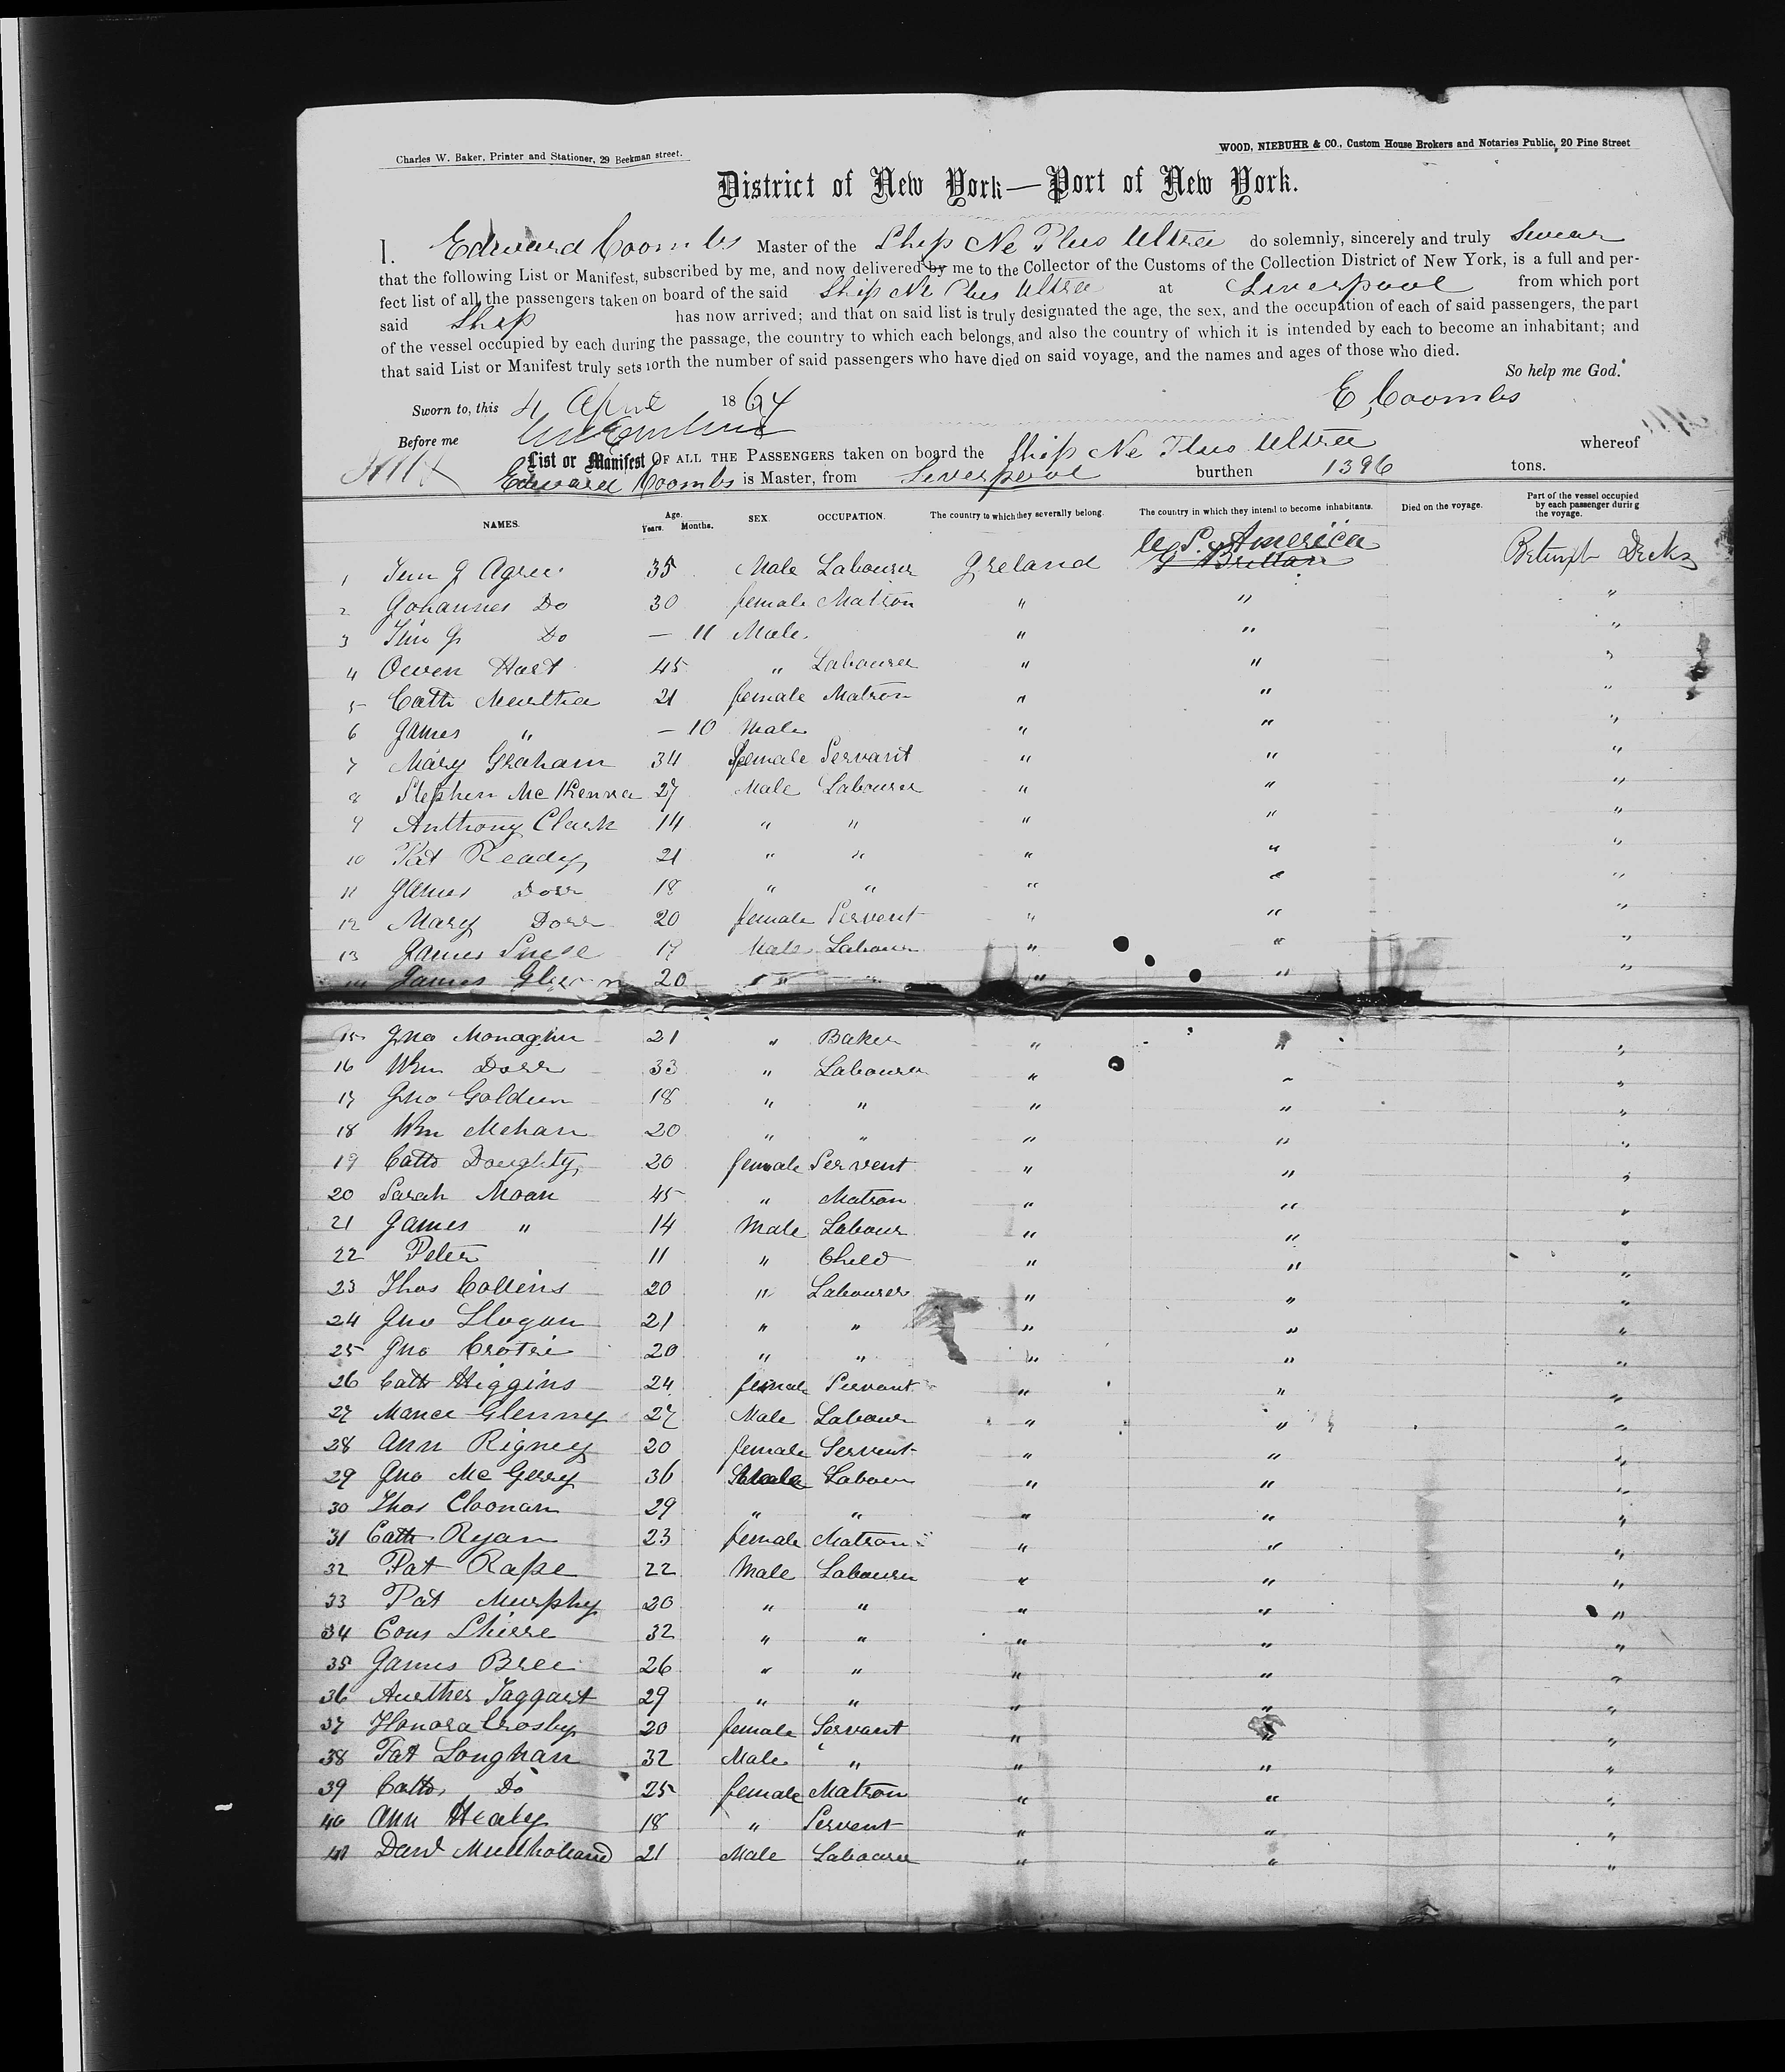 Charles W. Baker, Printer and Stationer, 29 Beekman street.
WOOD, NIEBUHR & CO., Custom House Brokers and Notaries Public, 20 Pine Street
District of New York—Port of New York.
I. Edward Coombs Master of the Ship Ne Plus Ultra do solemnly, sincerely and truly Swear
that the following List or Manifest, subscribed by me, and now delivered by me to the Collector of the Customs of the Collection District of New York, is a full and per-
fect list of all the passengers taken on board of the said Ship Ne Plus Ultra at Liverpool from which port
said Ship has now arrived; and that on said list is truly designated the age, the sex, and the occupation of each of said passengers, the part
of the vessel occupied by each during the passage, the country to which each belongs, and also the country of which it is intended by each to become an inhabitant; and
that said List or Manifest truly sets forth the number of said passengers who have died on said voyage, and the names and ages of those who died.
So help me God.
Sworn to, this 4 April 1864 E Coombs
Before me
List or Manifest OF ALL THE PASSENGERS taken on board the Ship Ne Plus Ultra whereof
Edward Coombs is Master, from Liverpool burthen 1396 tons.
NAMES. Age. Years. Months. SEX. OCCUPATION. The country to which they severally belong. The country in which they intend to become inhabitants. Died on the voyage. Part of the vessel occupied by each passenger during the voyage.
U. S. America
1 35 Male Labourer Ireland G Brittan Decks
2 Johannes Do 30 female Matron " " "
3 Do — 11 Male " " "
4 Owen Hart 45 " Labourer " " "
5 Cath Murtha 21 female Matron " " "
6 James " — 10 Male " " "
7 Mary Graham 34 female Servant " " "
8 Stephen McKenna 27 Male Labourer " " "
9 Anthony Clark 14 " " " " "
10 Pat Ready 21 " " " " "
11 James Dorr 18 " " " " "
12 Mary Dorr 20 female Servent " " "
13 James 17 Male Labour " " "
14 James 20 " " " " "
15 Jno Monaghn 21 " Baker " " "
16 Wm Dorr 33 " Labourer " " "
17 Jno Golden 18 " " " " "
18 Wm Mehan 20 " " " " "
19 Cath Doughty 20 female Servent " " "
20 Sarah Moan 45 " Matron " " "
21 James " 14 Male Labour " " "
22 Peter 11 " Child " " "
23 Thos Collins 20 " Labourer " " "
24 Jno Slogan 21 " " " " "
25 Jno Crotri 20 " " " " "
26 Cath Higgins 24 female Servant " " "
27 Glenney 27 Male Labour " " "
28 Ann Rigney 20 female Servent " " "
29 Jno McGerry 36 Male Labour " " "
30 Thos Cloonan 29 " " " " "
31 Cath Ryan 23 female Matron " " "
32 Pat Rape 22 Male Labourer " " "
33 Pat Murphy 20 " " " " "
34 Cons 32 " " " " "
35 James Bree 26 " " " " "
36 Aurther Taggart 29 " " " " "
37 Honora Crosby 20 female Servant " " "
38 Pat Longhan 32 Male " " " "
39 Cath Do 25 female Matron " " "
40 Ann Healy 18 " Servent " " "
41 David Mullholland 21 Male Labourer " " "